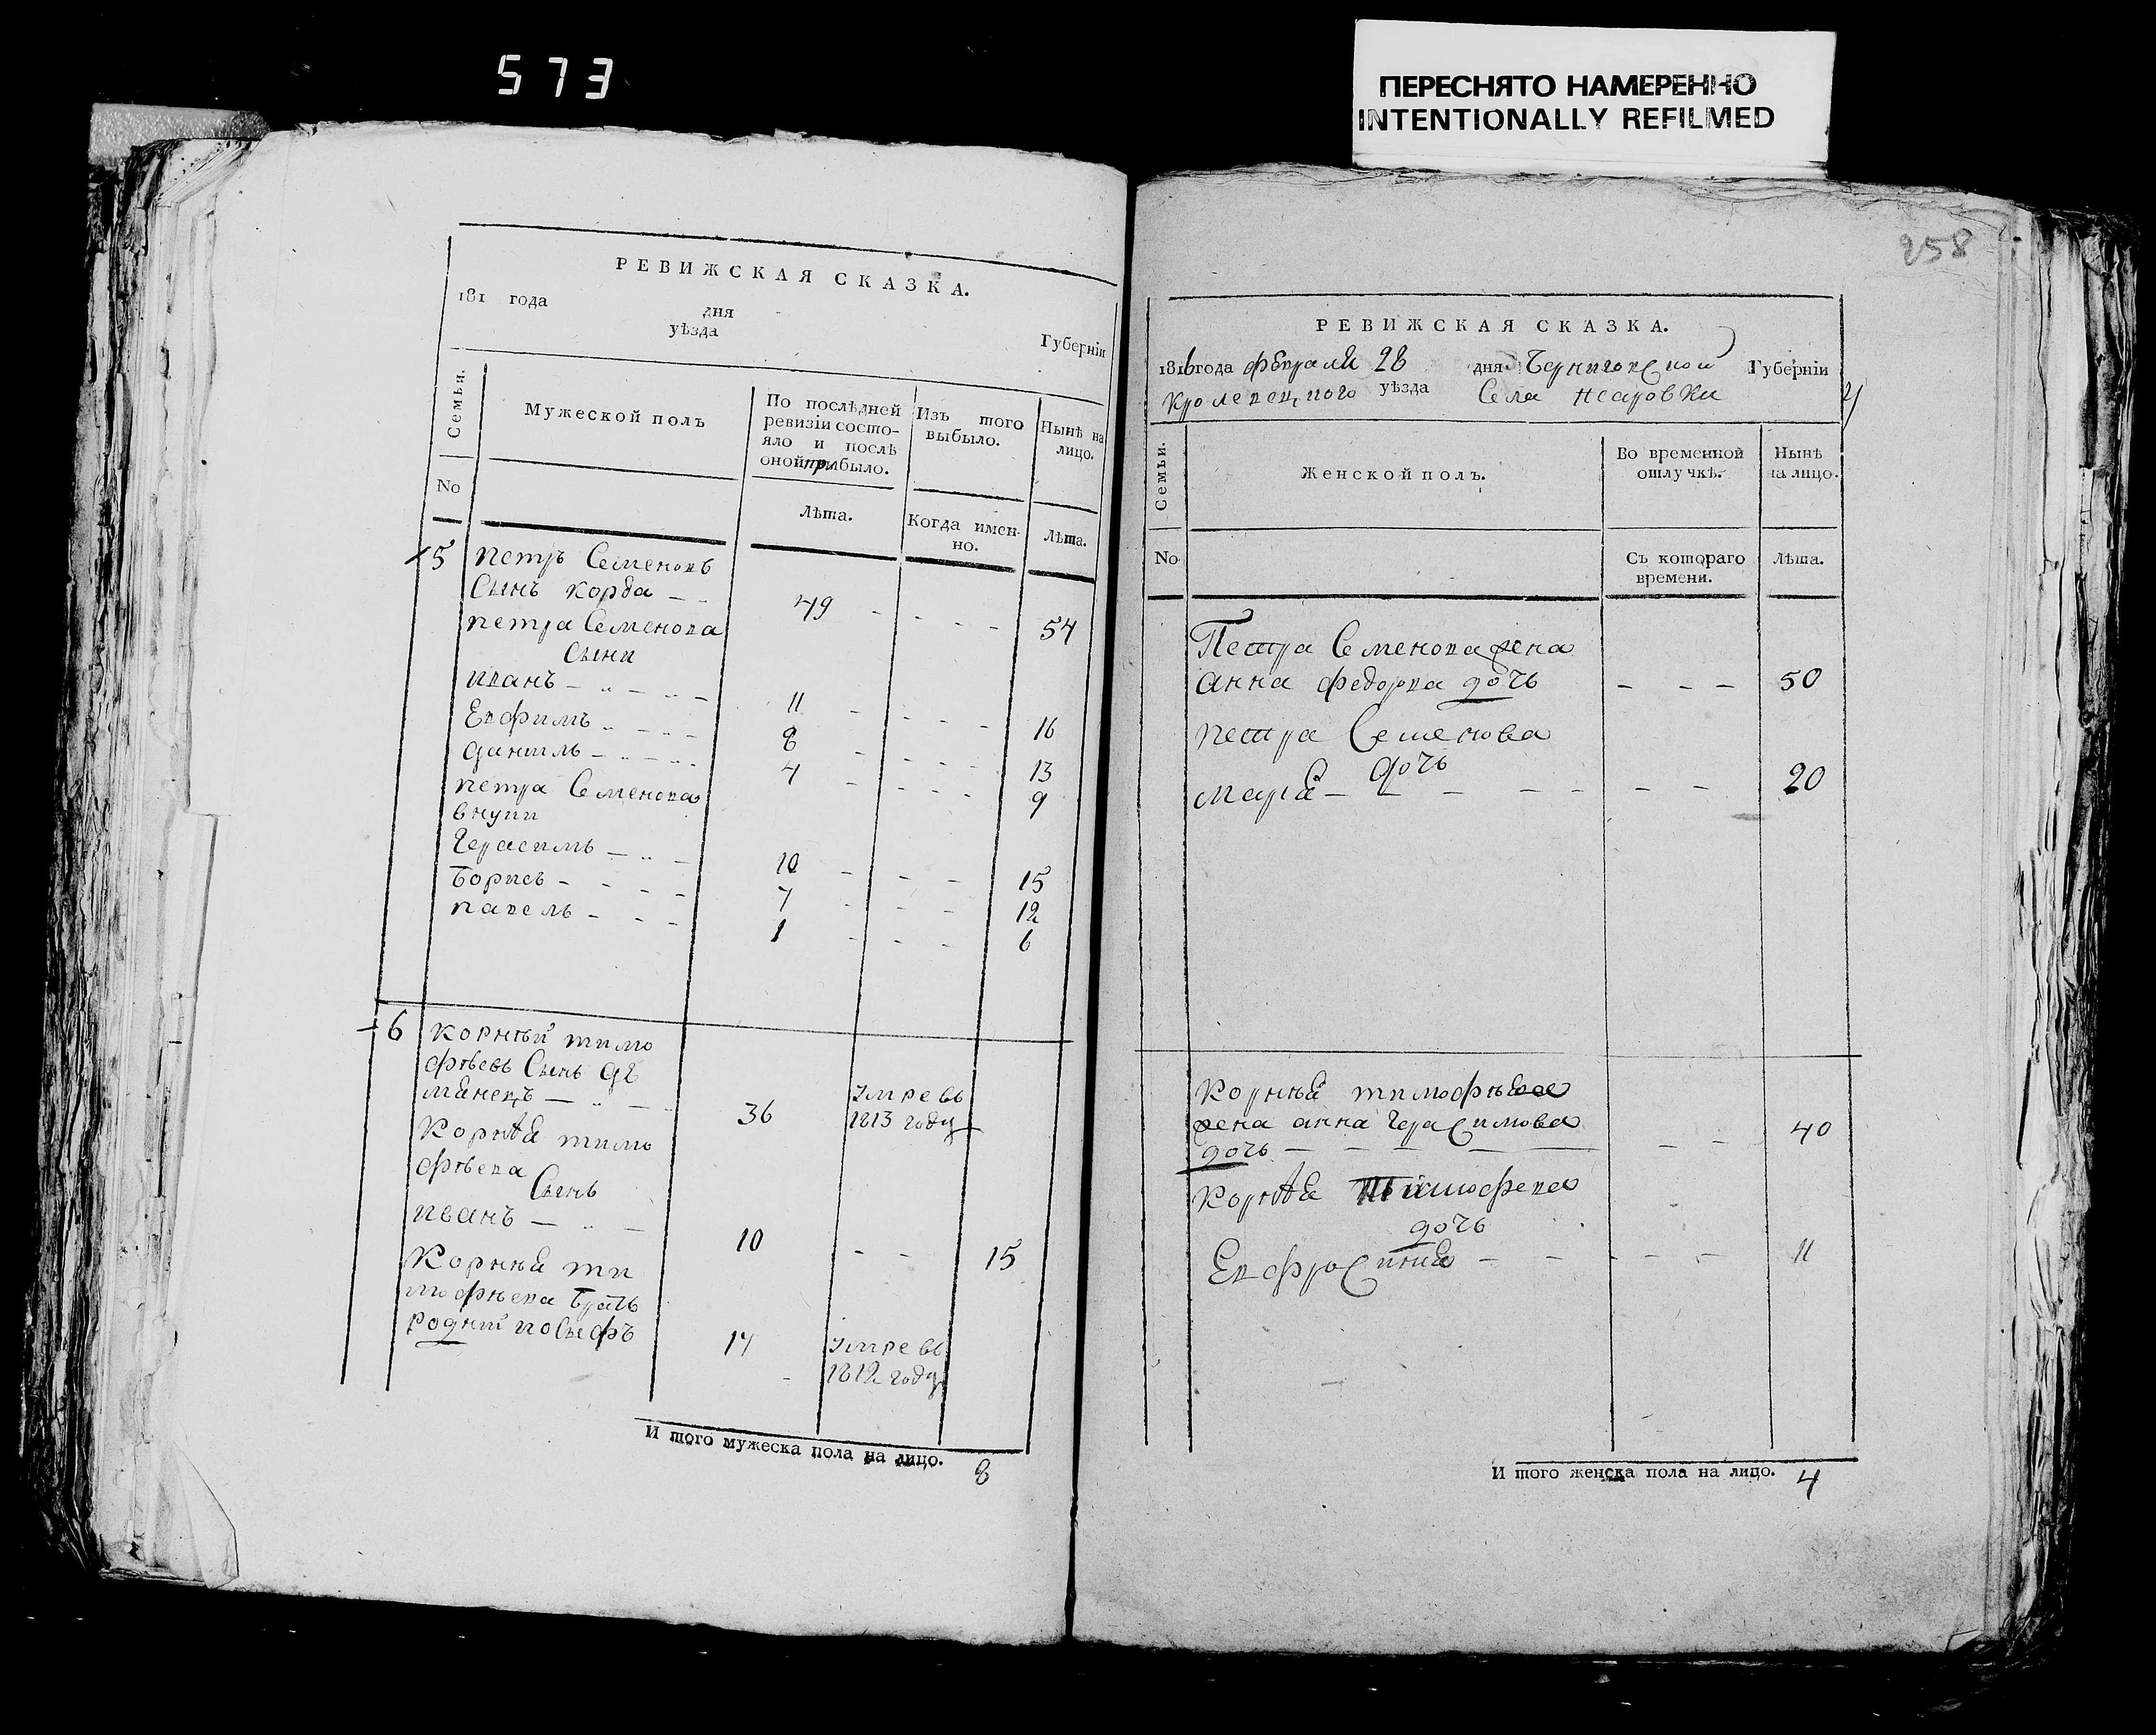 573
ПЕРЕСНЯТО НАМЕРЕННО
INTENTIONALLY REFILMED
258
РЕВИЖСКАЯ СКАЗКА.
181 года дня
уѣзда Губерніи
Семьи.
Мужеской полъ
По послѣдней ревизіи состояло и послѣ оной прибыло.
Изъ того выбыло.
Нынѣ на лицо.
No
Лѣта.
Когда именно.
Лѣта.
5 петръ Семеновъ
Сынъ корда 49 54
петра Семенова
Сыни
иванъ 11 16
Евфимъ 8 13
даниилъ 4 9
петра Семенова
внуки
Герасимъ 10 15
Борисъ 7 12
павелъ 1 6
6 корнѣй тимо
фѣевъ Сынъ де
манецъ 36 Умре въ
1813 году
Корнѣя тимо
фѣева
Сынъ
иванъ 10 15
Корнѣя ти
мофѣева братъ
родний иосыфъ 14 Умре въ
1812 году
И того мужеска пола на лицо. 8
РЕВИЖСКАЯ СКАЗКА.
1816 года февраля 28 дня Черниговской Губерніи
Кролевецкого уѣзда Села
Семьи.
Женской полъ.
Во временной отлучкѣ.
Нынѣ на лицо.
No
Съ котораго времени.
Лѣта.
Петра Семенова жена
анна федорова дочь 50
петра Семенова
дочь
мария 20
Корнѣя тимофѣева
жена анна Герасимова 40
дочь
Корнѣя Тимофева
дочь
Евфросиния 11
И того женска пола на лицо. 4